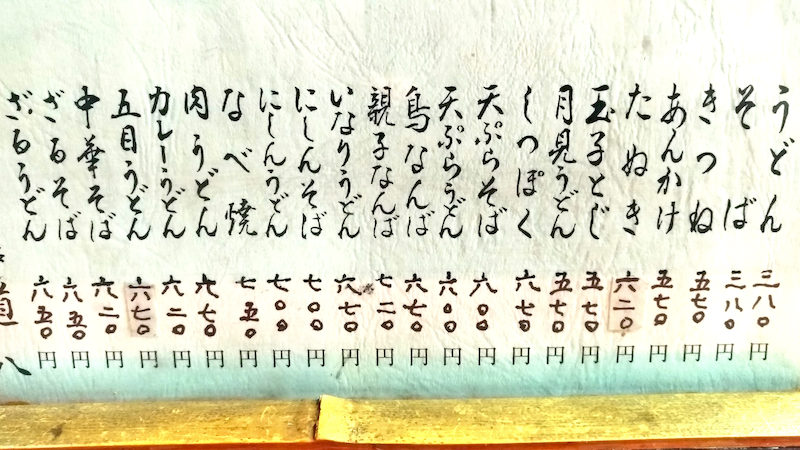 うどん 三八〇円
そば 三八〇円
きつね 五七〇円
あんかけ 五七〇円
たぬき 六二〇円
玉子とじ 五七〇円
月見うどん 五七〇円
しつぽく 六七〇円
天ぷらそば 六〇〇円
天ぷらうどん 六〇〇円
鳥なんば 六七〇円
親子なんば 七二〇円
いなりうどん 六七〇円
にしんそば 七〇〇円
にしんうどん 七〇〇円
なべ焼 七五〇円
肉うどん 六七〇円
カレーうどん 六二〇円
五目うどん 六七〇円
中華そば 六二〇円
ざるそば 六五〇円
ざるうどん 六五〇円